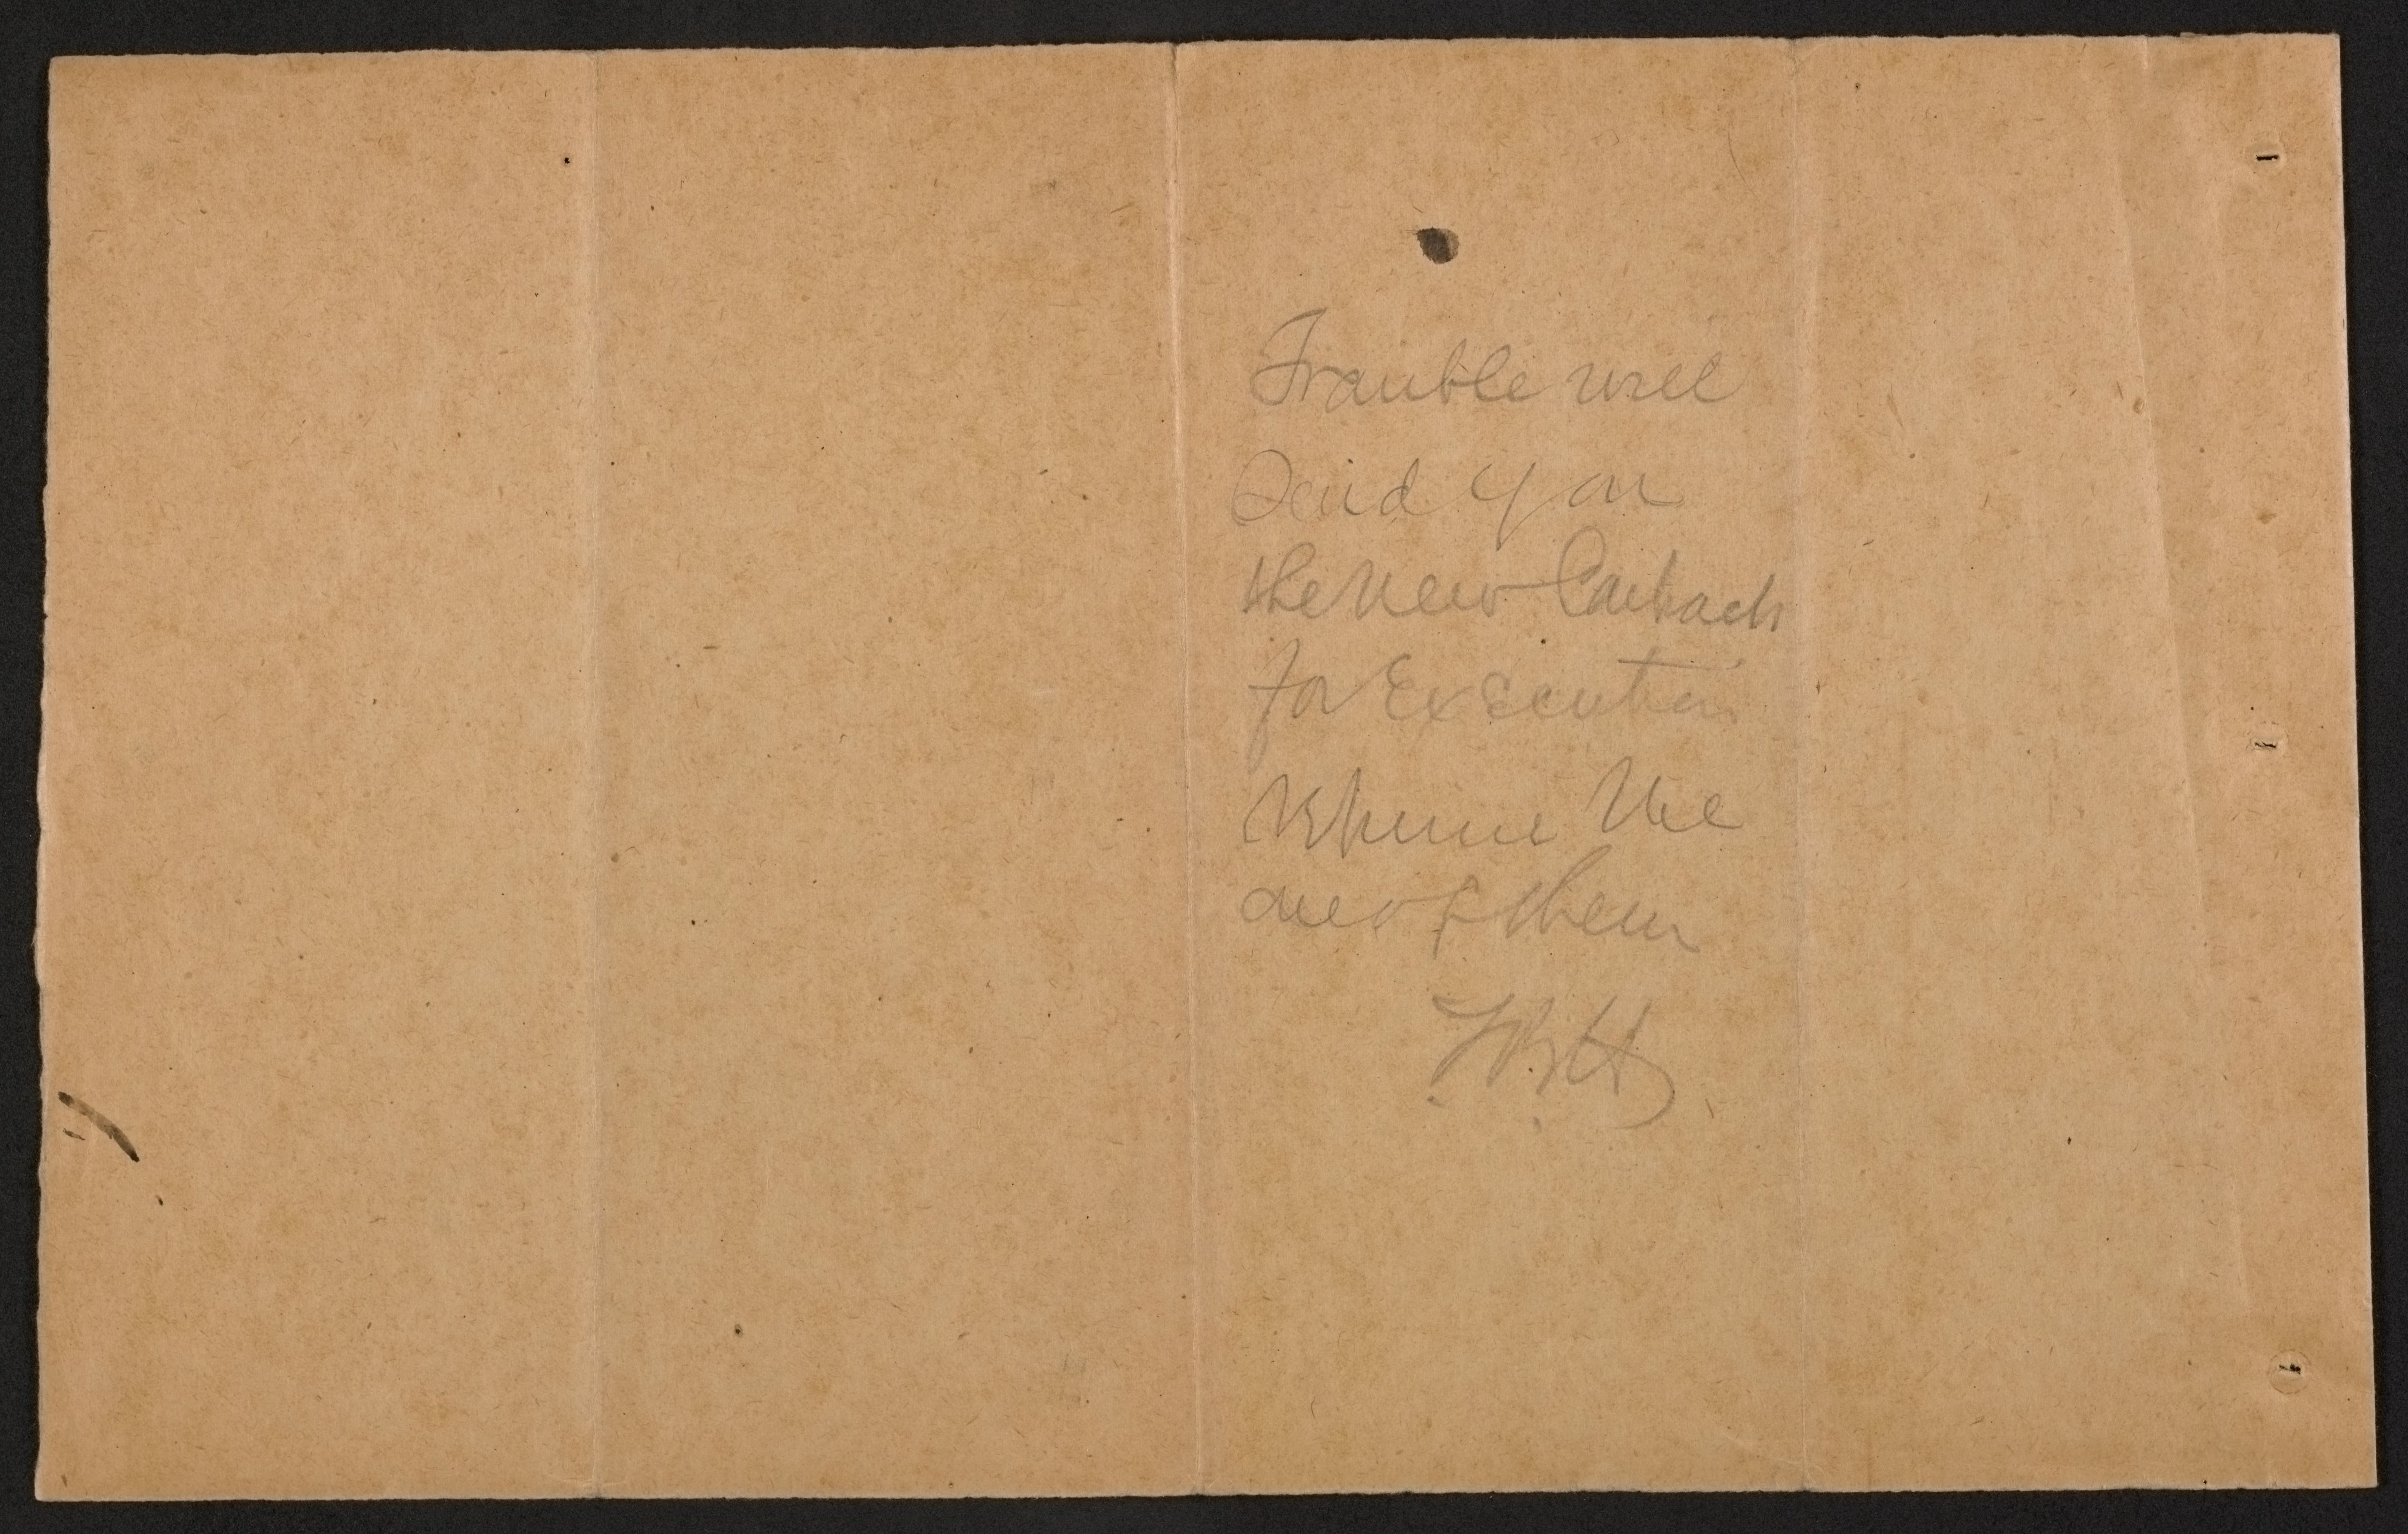 Trauble will
Send you
the new Contracts
for Execution
Return me
one of them
TBH